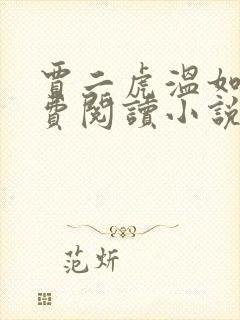 賈二虎溫如
費閱讀小說
范炘